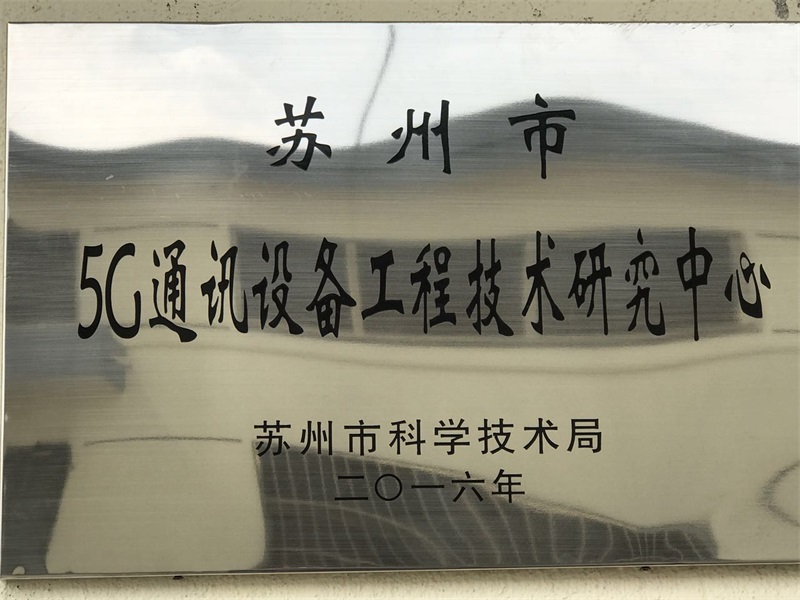 苏州市
5G通讯设备工程技术研究中心
苏州市科学技术局
二〇一六年